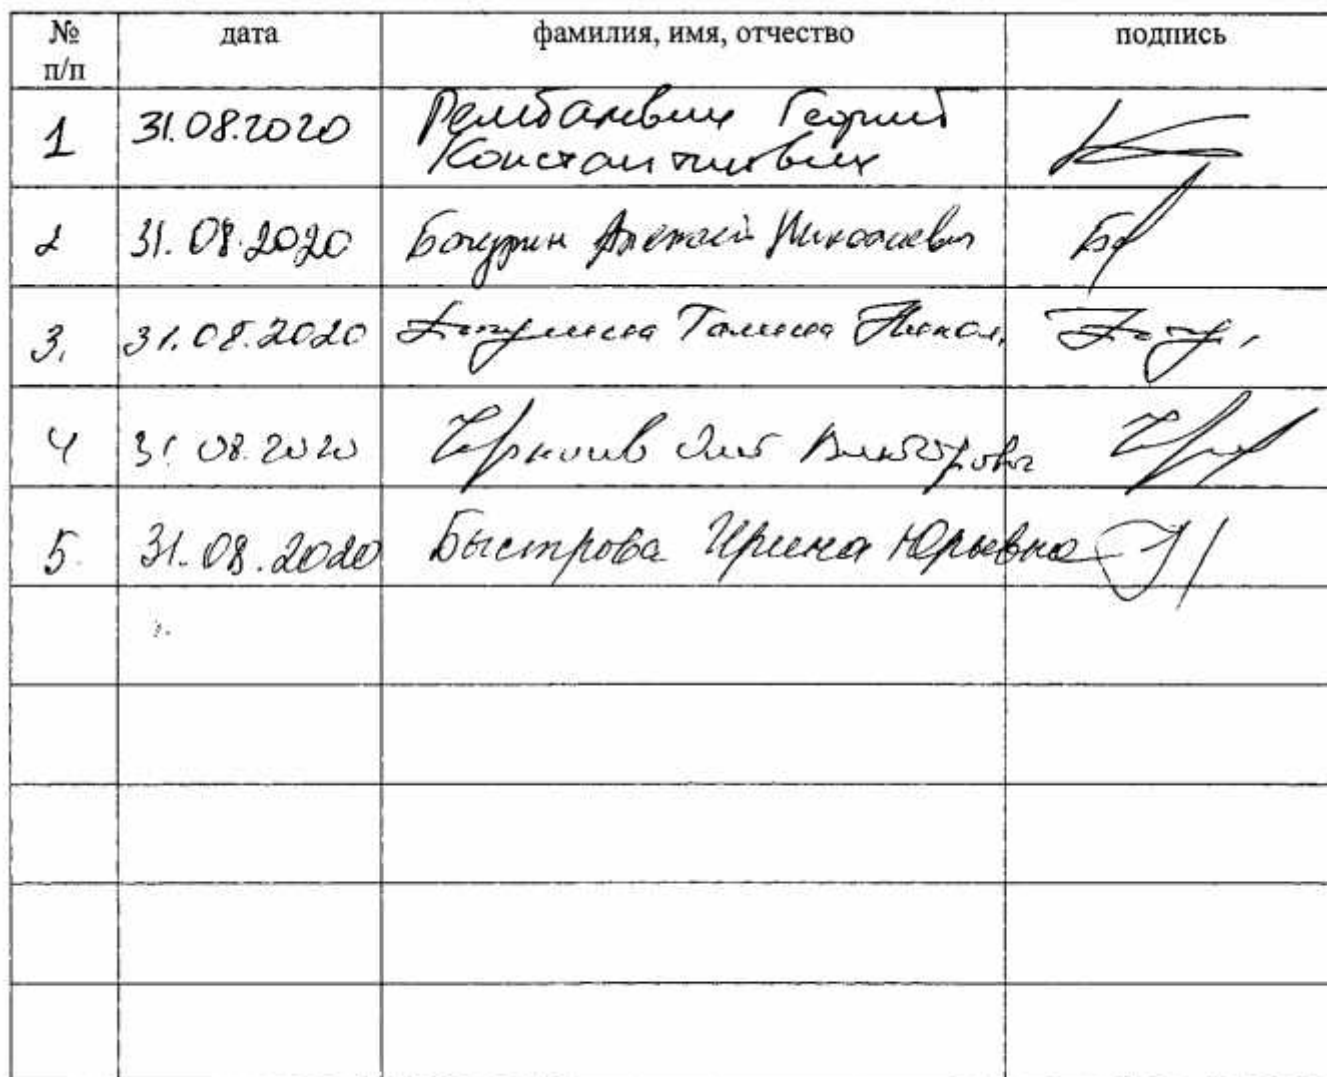 № п/п дата фамилия, имя, отчество подпись
1 31.08.2020 Рембалевич Георгий
Константинович
2 31.08.2020 Бачурин Алексей Николаевич
3. 31.08.2020 Галина Никол.
4 31.08.2020 Олег Викторович
5. 31.08.2020 Быстрова Ирина Юрьевна